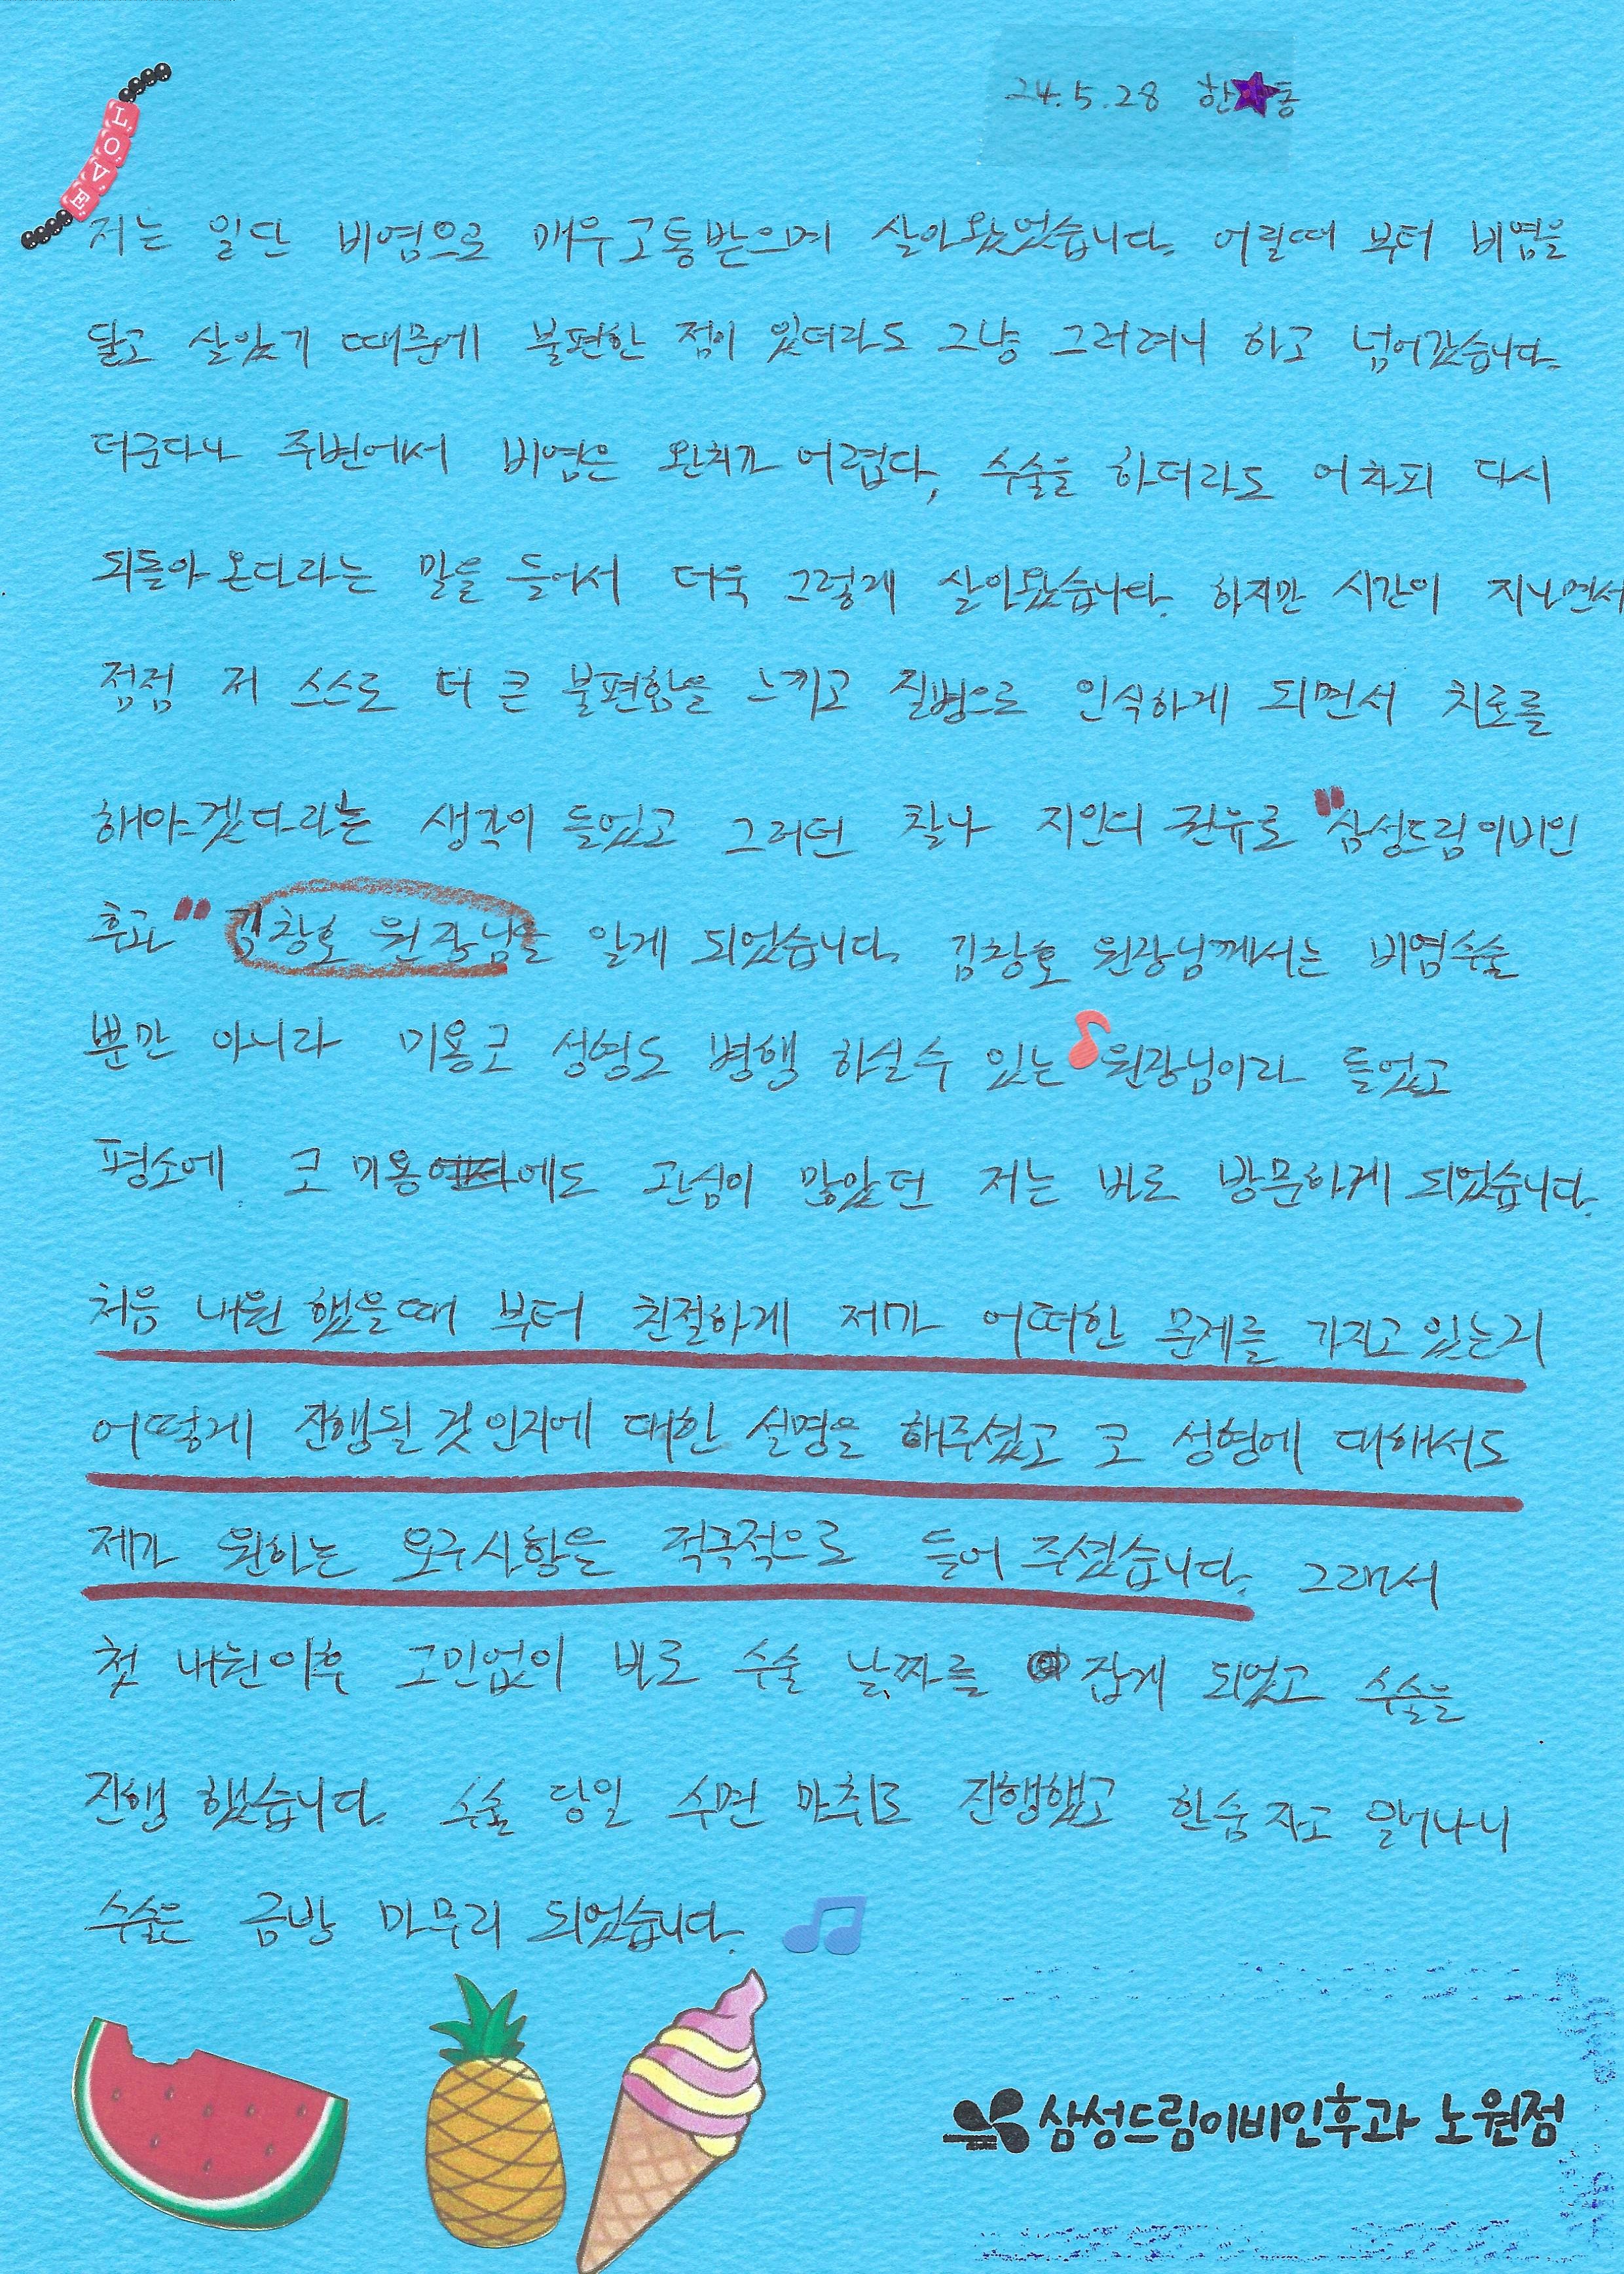 24.5.28 한★동
LOVE
저는 일단 비염으로 매우 고통받으며 살아왔었습니다. 어릴때 부터 비염을
달고 살았기 때문에 불편한 점이 있더라도 그냥 그러려니 하고 넘어갔습니다.
더군다나 주변에서 비염은 완치가 어렵다, 수술을 하더라도 어차피 다시
되돌아 온다라는 말을 들어서 더욱 그렇게 살아왔습니다. 하지만 시간이 지나면서
점점 저 스스로 더 큰 불편함을 느끼고 질병으로 인식하게 되면서 치료를
해야겠다라는 생각이 들었고 그러던 찰나 지인의 권유로 "삼성드림이비인
후과" 김창호 원장님을 알게 되었습니다. 김창호 원장님께서는 비염수술
뿐만 아니라 미용코 성형도 병행 하실수 있는 원장님이라 들었고
평소에 코 미용에도 관심이 많았던 저는 바로 방문하게 되었습니다.
처음 내원 했을때 부터 친절하게 제가 어떠한 문제를 가지고 있는지
어떻게 진행될 것인지에 대한 설명을 해주셨고 코 성형에 대해서도
제가 원하는 요구사항을 적극적으로 들어 주셨습니다. 그래서
첫 내원이후 고민없이 바로 수술 날짜를 잡게 되었고 수술을
진행 했습니다. 수술 당일 수면 마취로 진행했고 한숨 자고 일어나니
수술은 금방 마무리 되었습니다.
삼성드림이비인후과 노원점